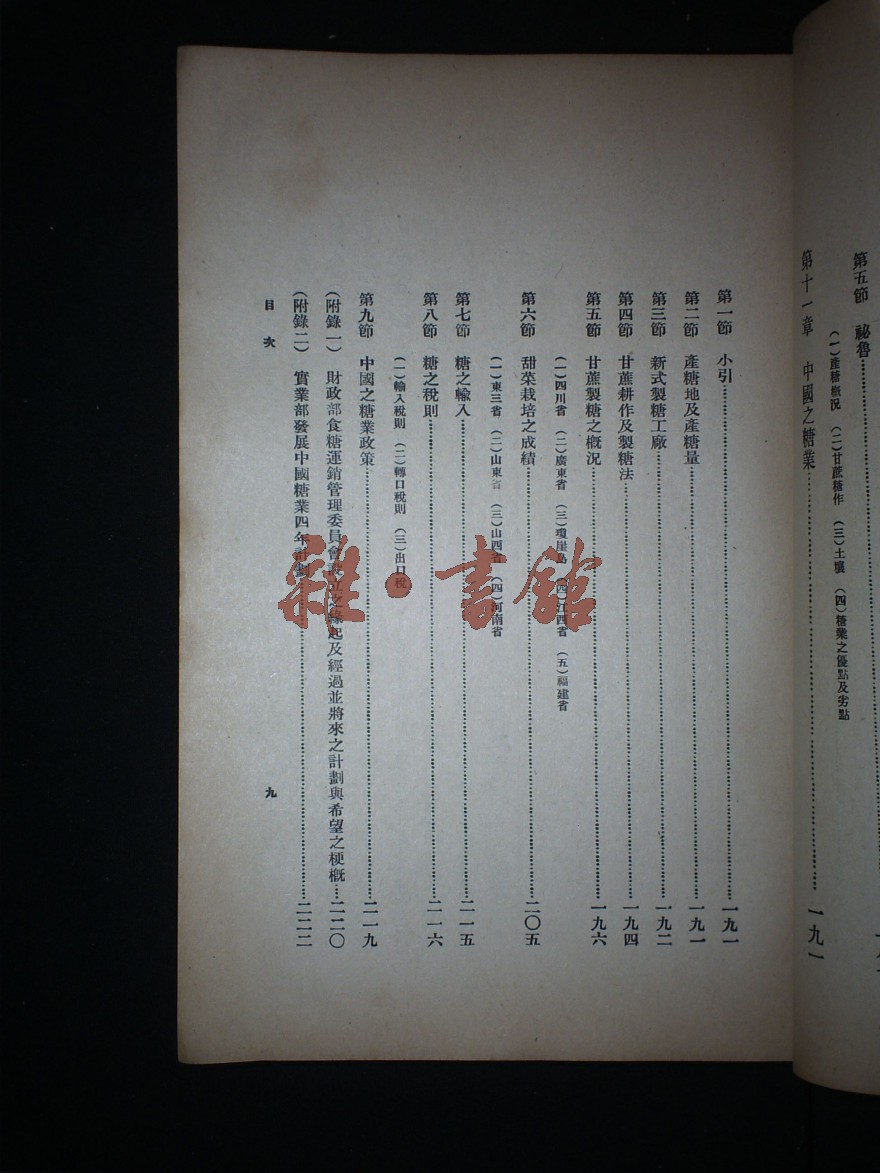 第五節　祕魯……
(一)產糖槪況　(二)甘蔗糖作　(三)土壤　(四)糖業之優點及劣點
第十一章　中國之糖業……一九一
第一節　小引……一九一
第二節　產糖地及產糖量……一九一
第三節　新式製糖工廠……一九二
第四節　甘蔗耕作及製糖法……一九四
第五節　甘蔗製糖之槪況……一九六
(一)四川省　(二)廣東省　(三)瓊崖島　(四)江西省　(五)福建省
第六節　甜菜栽培之成績……二〇五
(一)東三省　(二)山東省　(三)山西省　(四)河南省
第七節　糖之輸入……二一五
第八節　糖之稅則……二一六
(一)輸入稅則　(二)轉口稅則　(三)出口稅
第九節　中國之糖業政策……二一九
(附錄一)　財政部食糖運銷管理委員會設立之緣起及經過並將來之計劃與希望之梗槪……二二〇
(附錄二)　實業部發展中國糖業四年計劃……二二二
目次
九
雜·書館